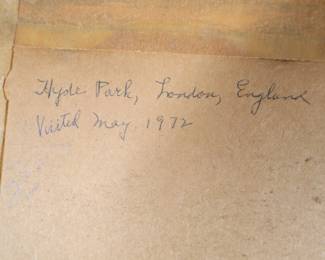 Hyde Park, London, England
Visited May 1972